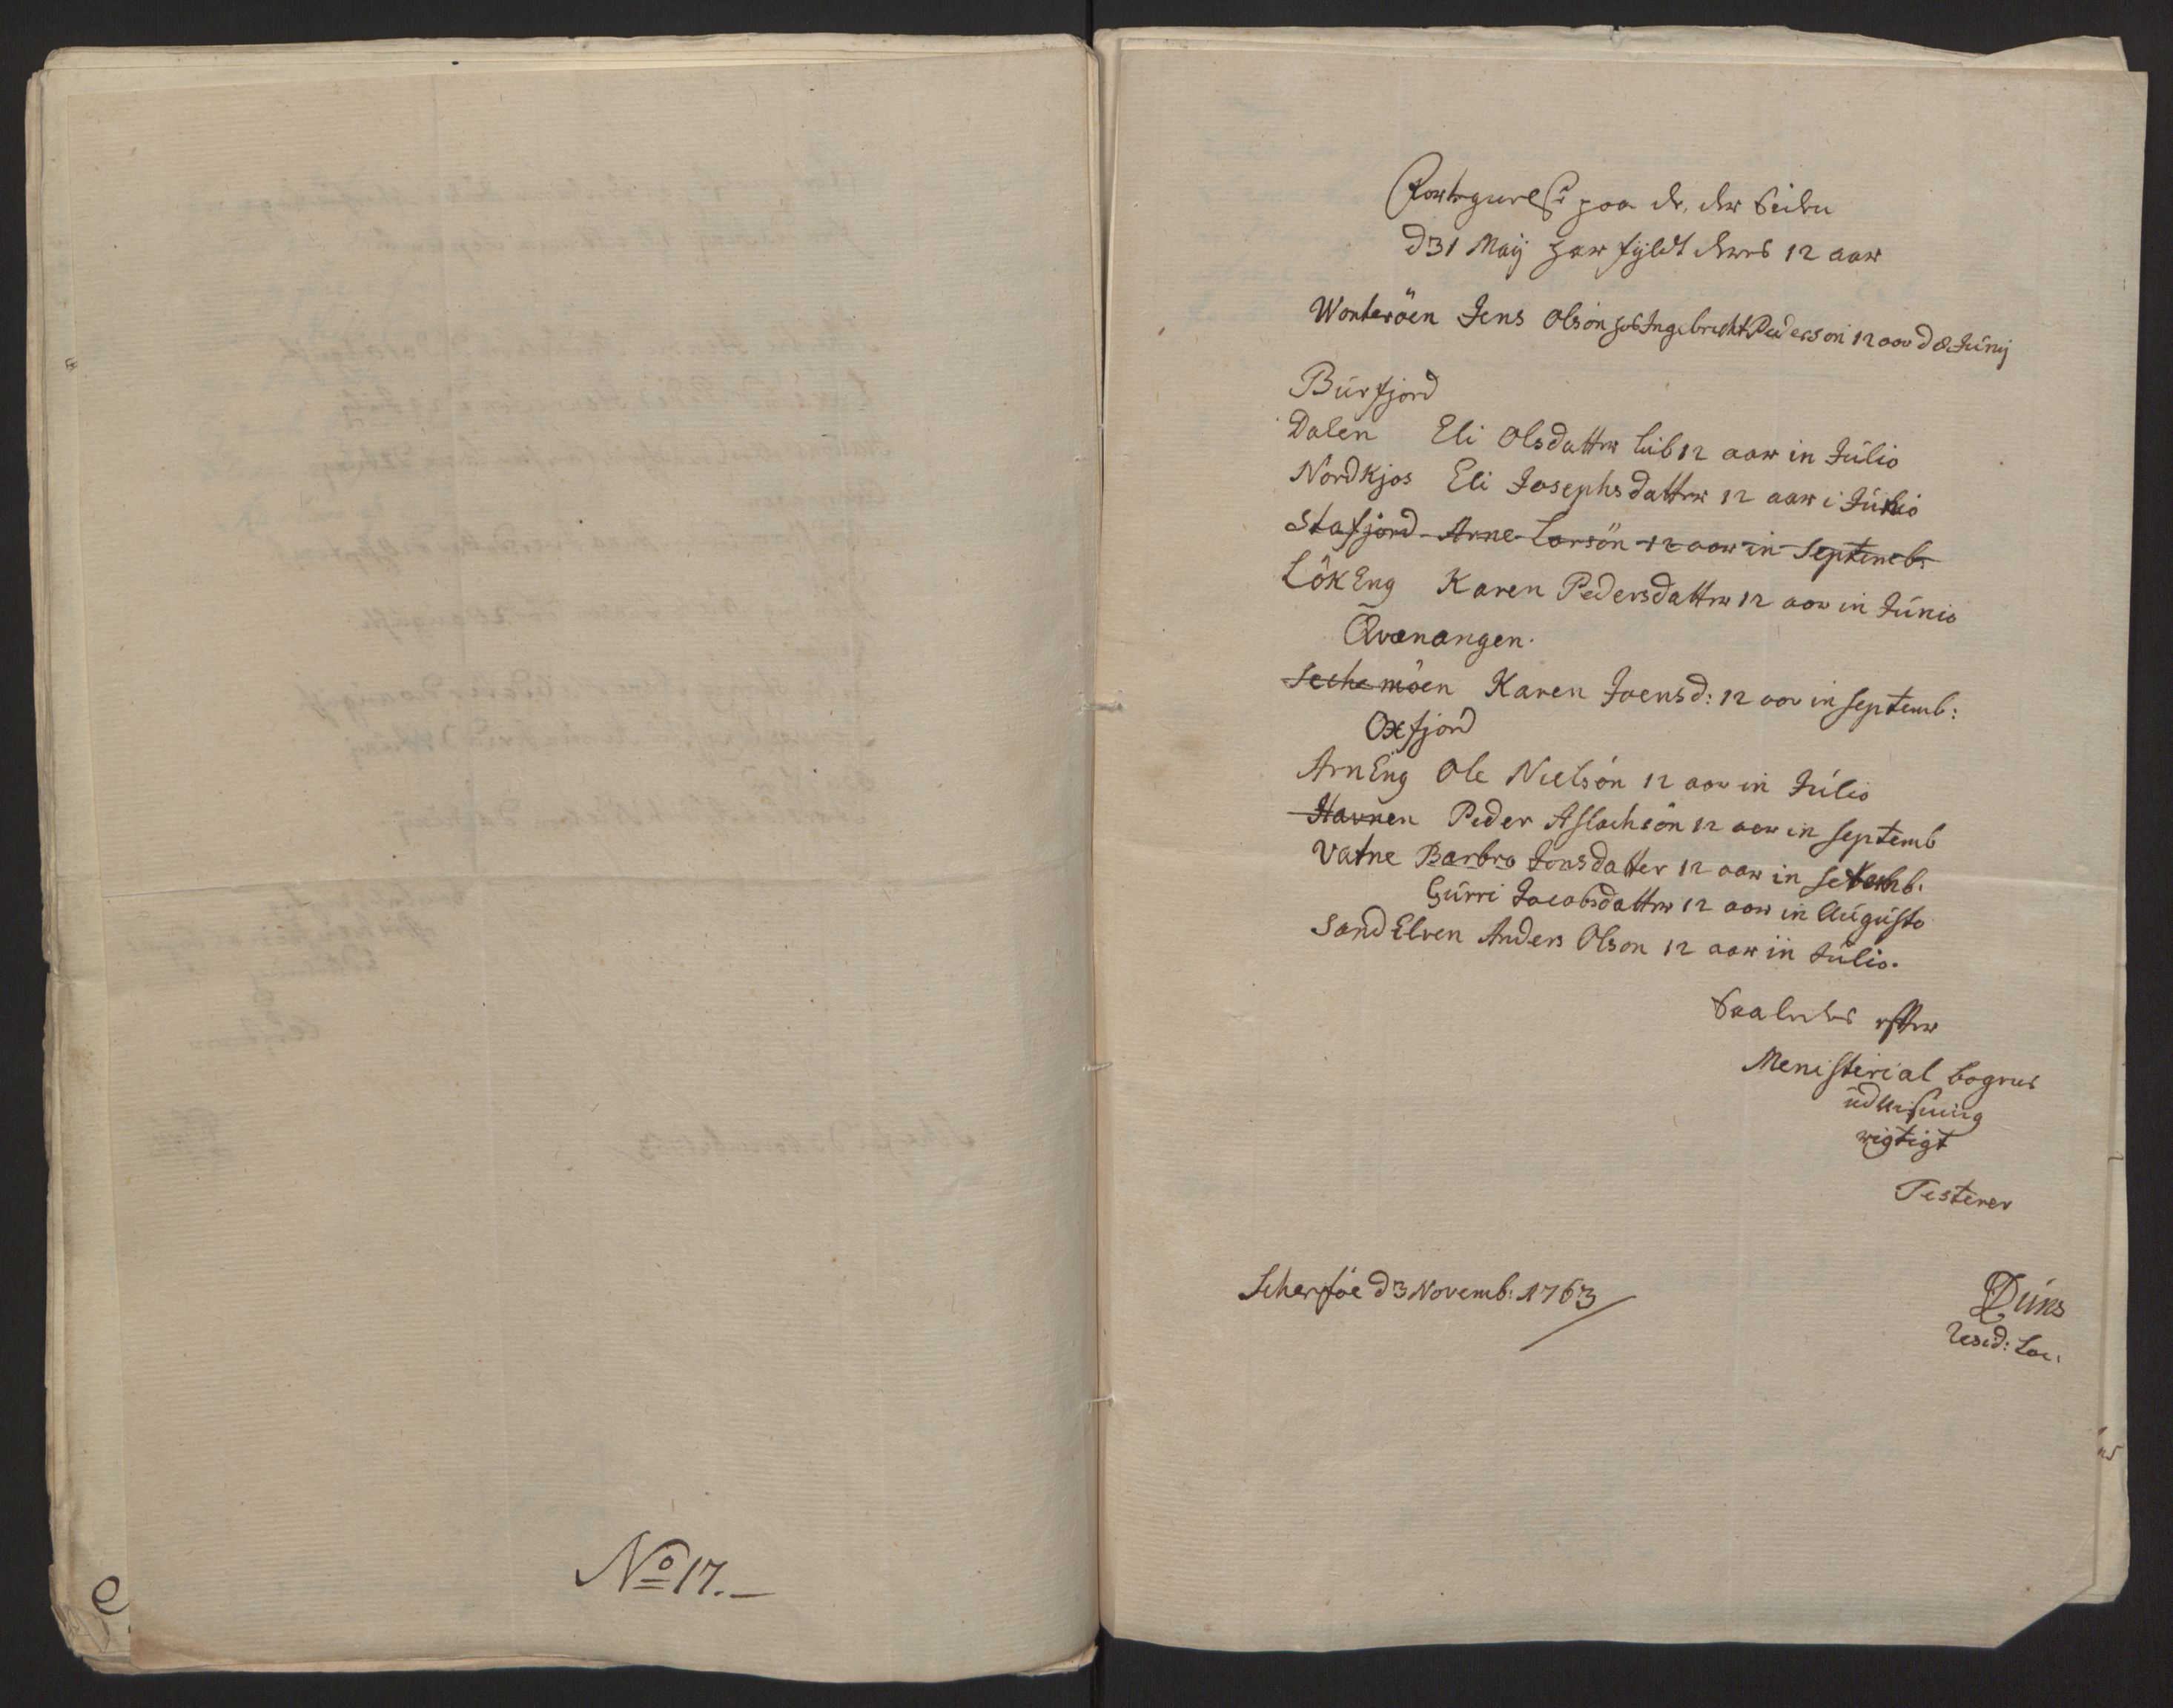 No 17.
Fortegnelse paa de, der siden
d 31 Maij har fyldt deres 12 aar
Worteröen Jens Olsön hos Ingebricht Pedersön 12 aar d 8 Junij
Burfjord
Dalen Eli Olsdatter 12 aar in Julio
Nordkjos Eli Josephsdatter 12 aar i Junio
Stafjord Arne Larsön 12 aar in Septembr
LökEng Karen Pedersdatter 12 aar in Junio
Qvænangen.
Karen Joensd: 12 aar in Septemb:
Oxfjord
ArnEng Ole Nielsön 12 aar in Julio
Havnen Peder Aslachsön 12 aar in Septemb
Vatne Barbro Jonsdatter 12 aar in
Gurri Jacobsdatter 12 aar in Augusto
SandElven Anders Olson 12 aar in Julio.
Saaledes efter
Menisterial bogens
udviisning
rigtigt
Testerer
Scherföe d 3 Novemb: 1763
Resid: Cap: